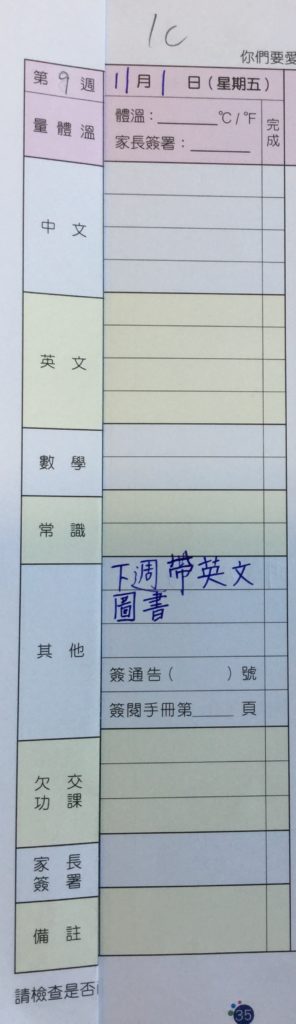 1C
你們要愛
第9週
11月1日(星期五)
量體溫
體溫:______℃/℉
家長簽署:______
完成
中文
英文
數學
常識
其他
下週帶英文
圖書
簽通告( )號
簽閱手冊第____頁
欠交
功課
家長
簽署
備註
請檢查是否
35